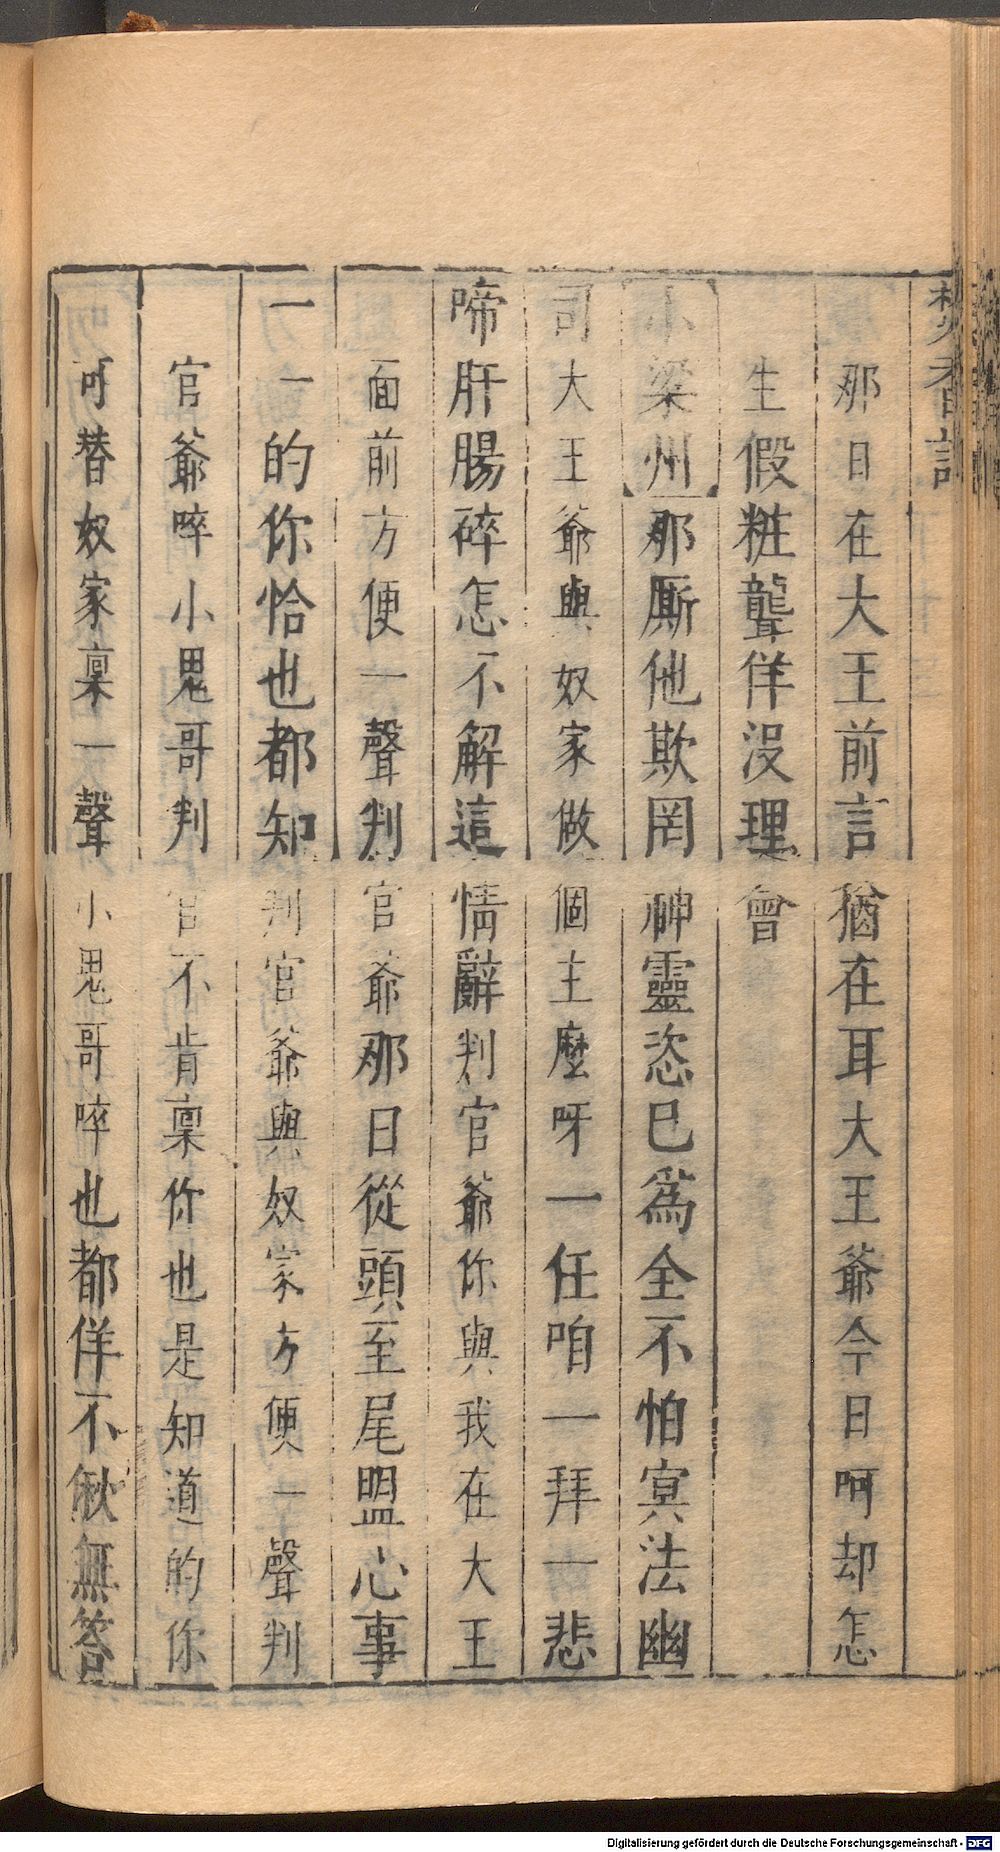 焚香記
那日在大王前言猶在耳大王爺今日呵却怎
生假粧聾佯没理會
小梁州那厮他欺罔神靈恣已爲全不怕冥法幽
司大王爺與奴家做個主麽呀一任咱一拜一悲
啼肝腸碎怎不解這情辭判官爺你與我在大王
面前方便一聲判官爺那日從頭至尾盟心事
一一的你恰也都知判官爺與奴家方便一聲判
官爺啐小鬼哥判官不肯禀你也是知道的你
可替奴家禀一聲小鬼哥啐也都佯不偢無答
Digitalisierung gefördert durch die Deutsche Forschungsgemeinschaft - DFG